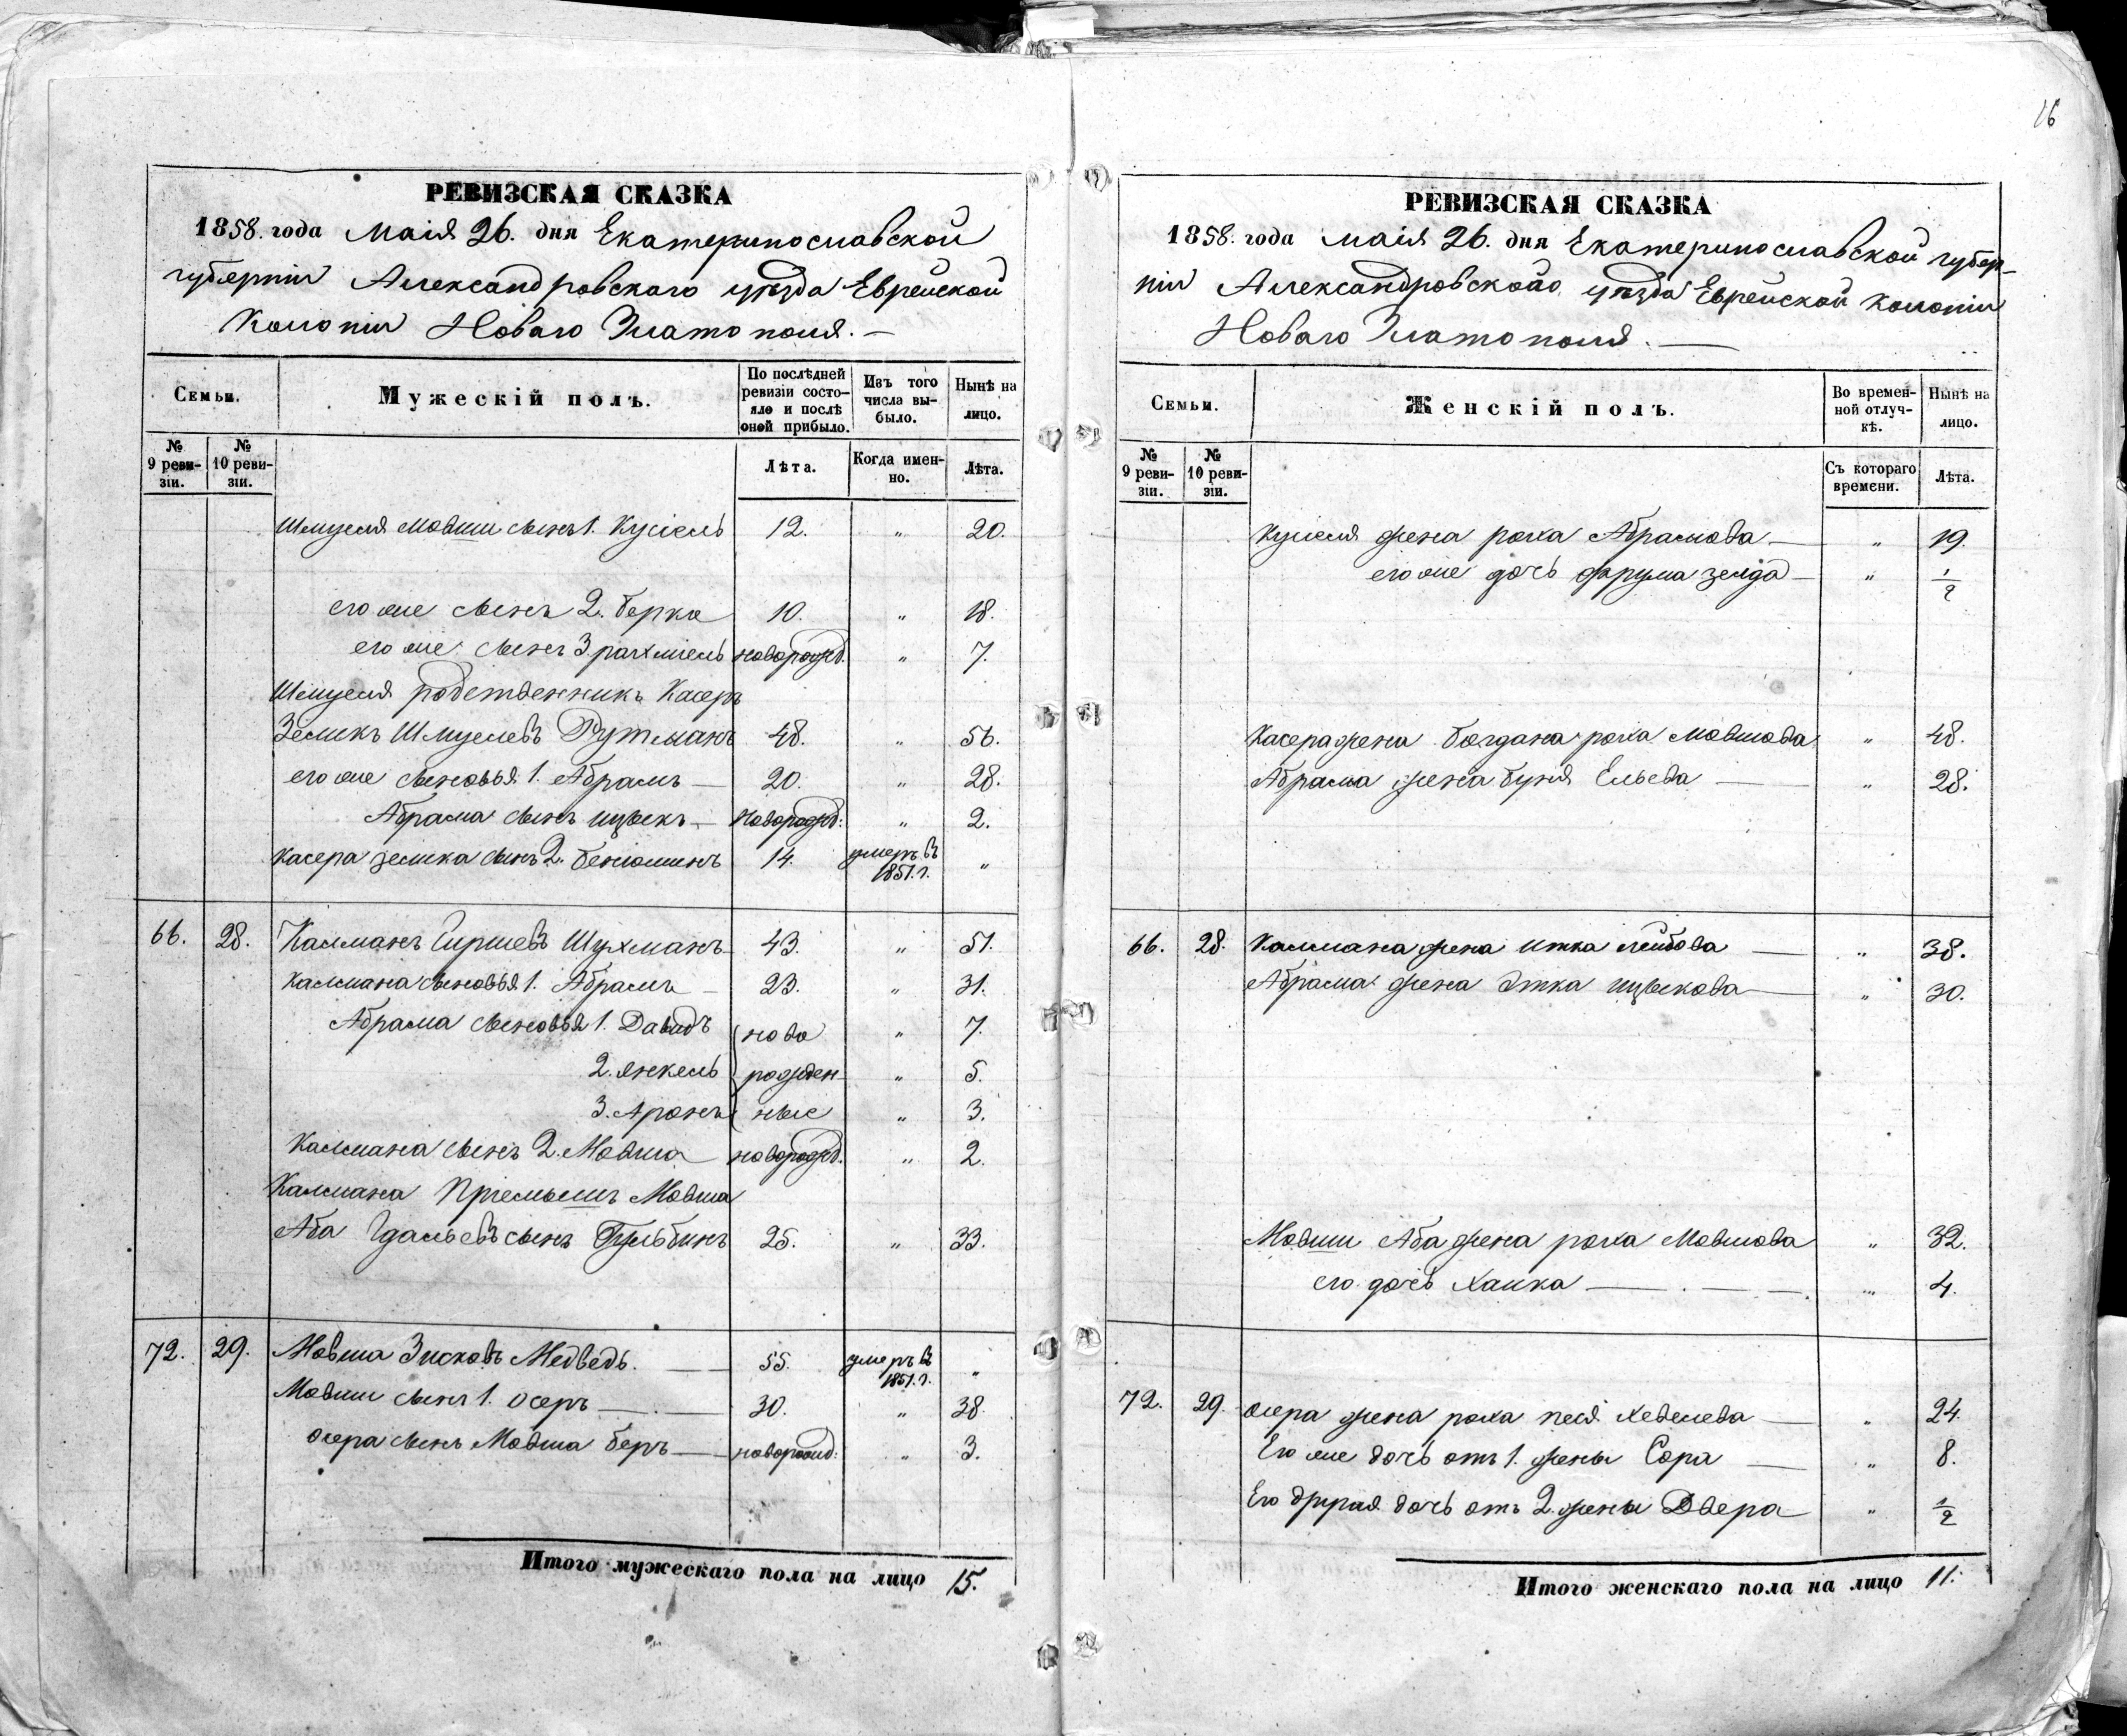 16
РЕВИЗСКАЯ СКАЗКА
1858. года Маія 26. дня Екатеринославской
губерніи Александровскаго уѣзда Еврейской
Колоніи Новаго Златополя. —
Семьи. Мужескій полъ. По послѣдней ревизіи состояло и послѣ оной прибыло. Изъ того числа выбыло. Нынѣ на лицо.
№ 9 ревизіи. № 10 ревизіи. Лѣта. Когда именно. Лѣта.
Шмуеля Мовши сынъ 1. Кусіель 12. " 20.
его же сынъ 2. Берка 10. " 18.
его же сынъ 3 рахміель новорожд. " 7.
Шмуеля родственникъ Касеръ
Зеликъ Шмулевъ Рутманъ 48. " 56.
его же сыновья 1. Абрамъ — 20. " 28.
Абрама сынъ ицыкъ — Новорожд: " 2.
Касера зелика сынъ 2. бенюминъ 14. умеръ въ 1851. г. "
66. 28. Калманъ Гиршевъ Шухманъ 43. " 51.
Калмана сыновья 1. Абрамъ — 23. " 31.
Абрама сыновья 1. Давидъ ново " 7.
2. янкель рожден " 5.
3. Аронъ ные " 3.
Калмана сынъ 2. Мовша новорожд. " 2.
Калмана Пріемышъ Мовша
Аба Гдальевъ сынъ 25. " 33.
72. 29. Мовша Зисковъ Медведь. — 55. умеръ въ 1851. г. "
Мовши сынъ 1. Осеръ — 30. " 38
Осера сынъ Мовша беръ — новорожд: " 3.
Итого мужескаго пола на лицо 15.
РЕВИЗСКАЯ СКАЗКА
1858. года маія 26. дня Екатеринославской губер-
ніи Александровскаго уѣзда Еврейской колоніи
Новаго Златополя. —
Семьи. Женскій полъ. Во временной отлучкѣ. Нынѣ на лицо.
№ 9 ревизіи. № 10 ревизіи. Съ котораго времени. Лѣта.
Кусіеля жена роха Абрамова — " 19.
его же дочь фрума зелда — " 1/2
Касера жена богдана роха мовшова " 48.
Абрама жена буня Ельева — " 28.
66. 28. Калмана жена итка лейбова — " 38.
Абрама жена Этка ицыкова — " 30.
Мовши Аба жена роха Мовшова " 32.
его дочь Хаика — " 4.
72. 29. Осера жена роха песя хевелева — " 24.
Его же дочь отъ 1. жены Сора — " 8.
Его другая дочь отъ 2. жены Двера — " 1/2
Итого женскаго пола на лицо 11.